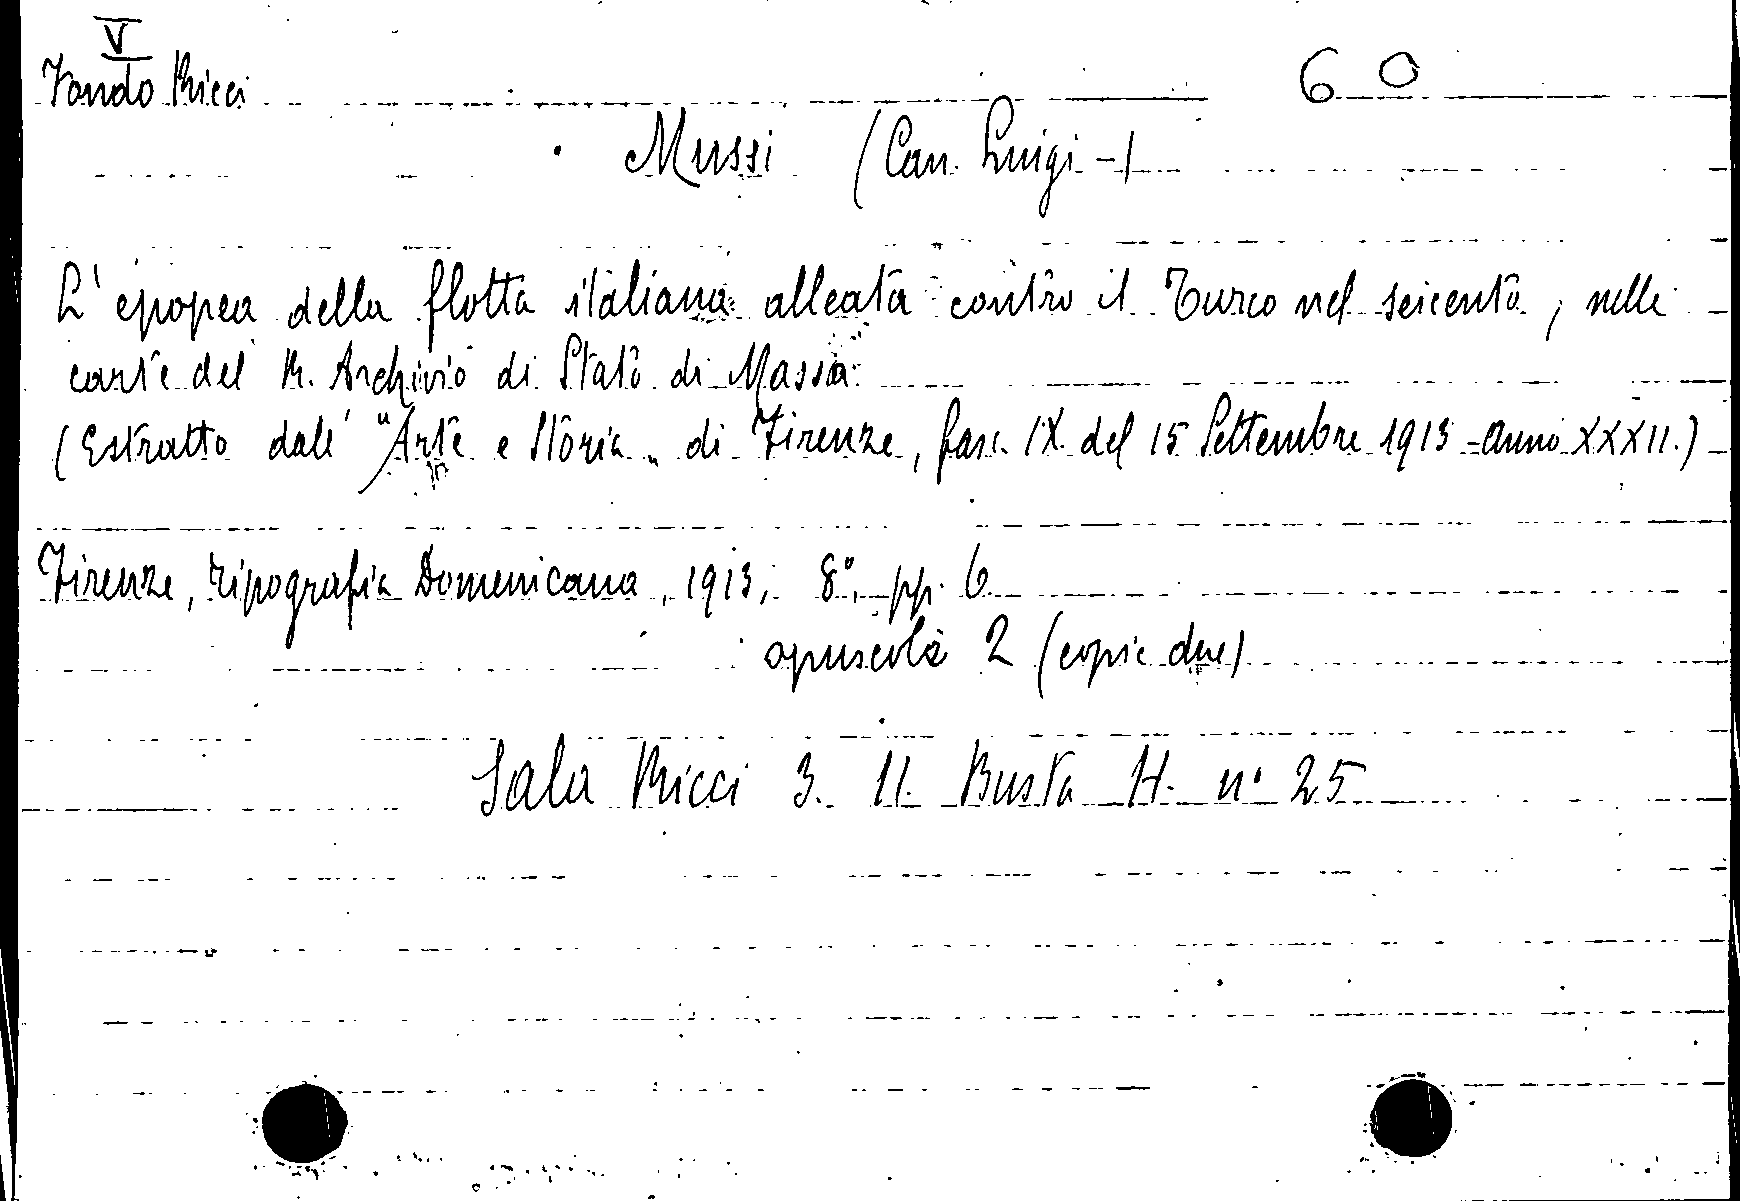 V
Fondo Ricci 60
Mussi (Can. Luigi -)
L'epopea della flotta italiana alleata contro il Turco nel seicento, nelle
carte del R. Archivio di Stato di Massa.
(Estratto dall' "Arte e Storia„ di Firenze, fasc. IX. del 15 Settembre 1913 - anno XXXII.)
Firenze, tipografia Domenicana, 1913, 8°, pp. 6
opuscolo 2 (copie due)
Sala Ricci 3. 11. Busta H. n° 25